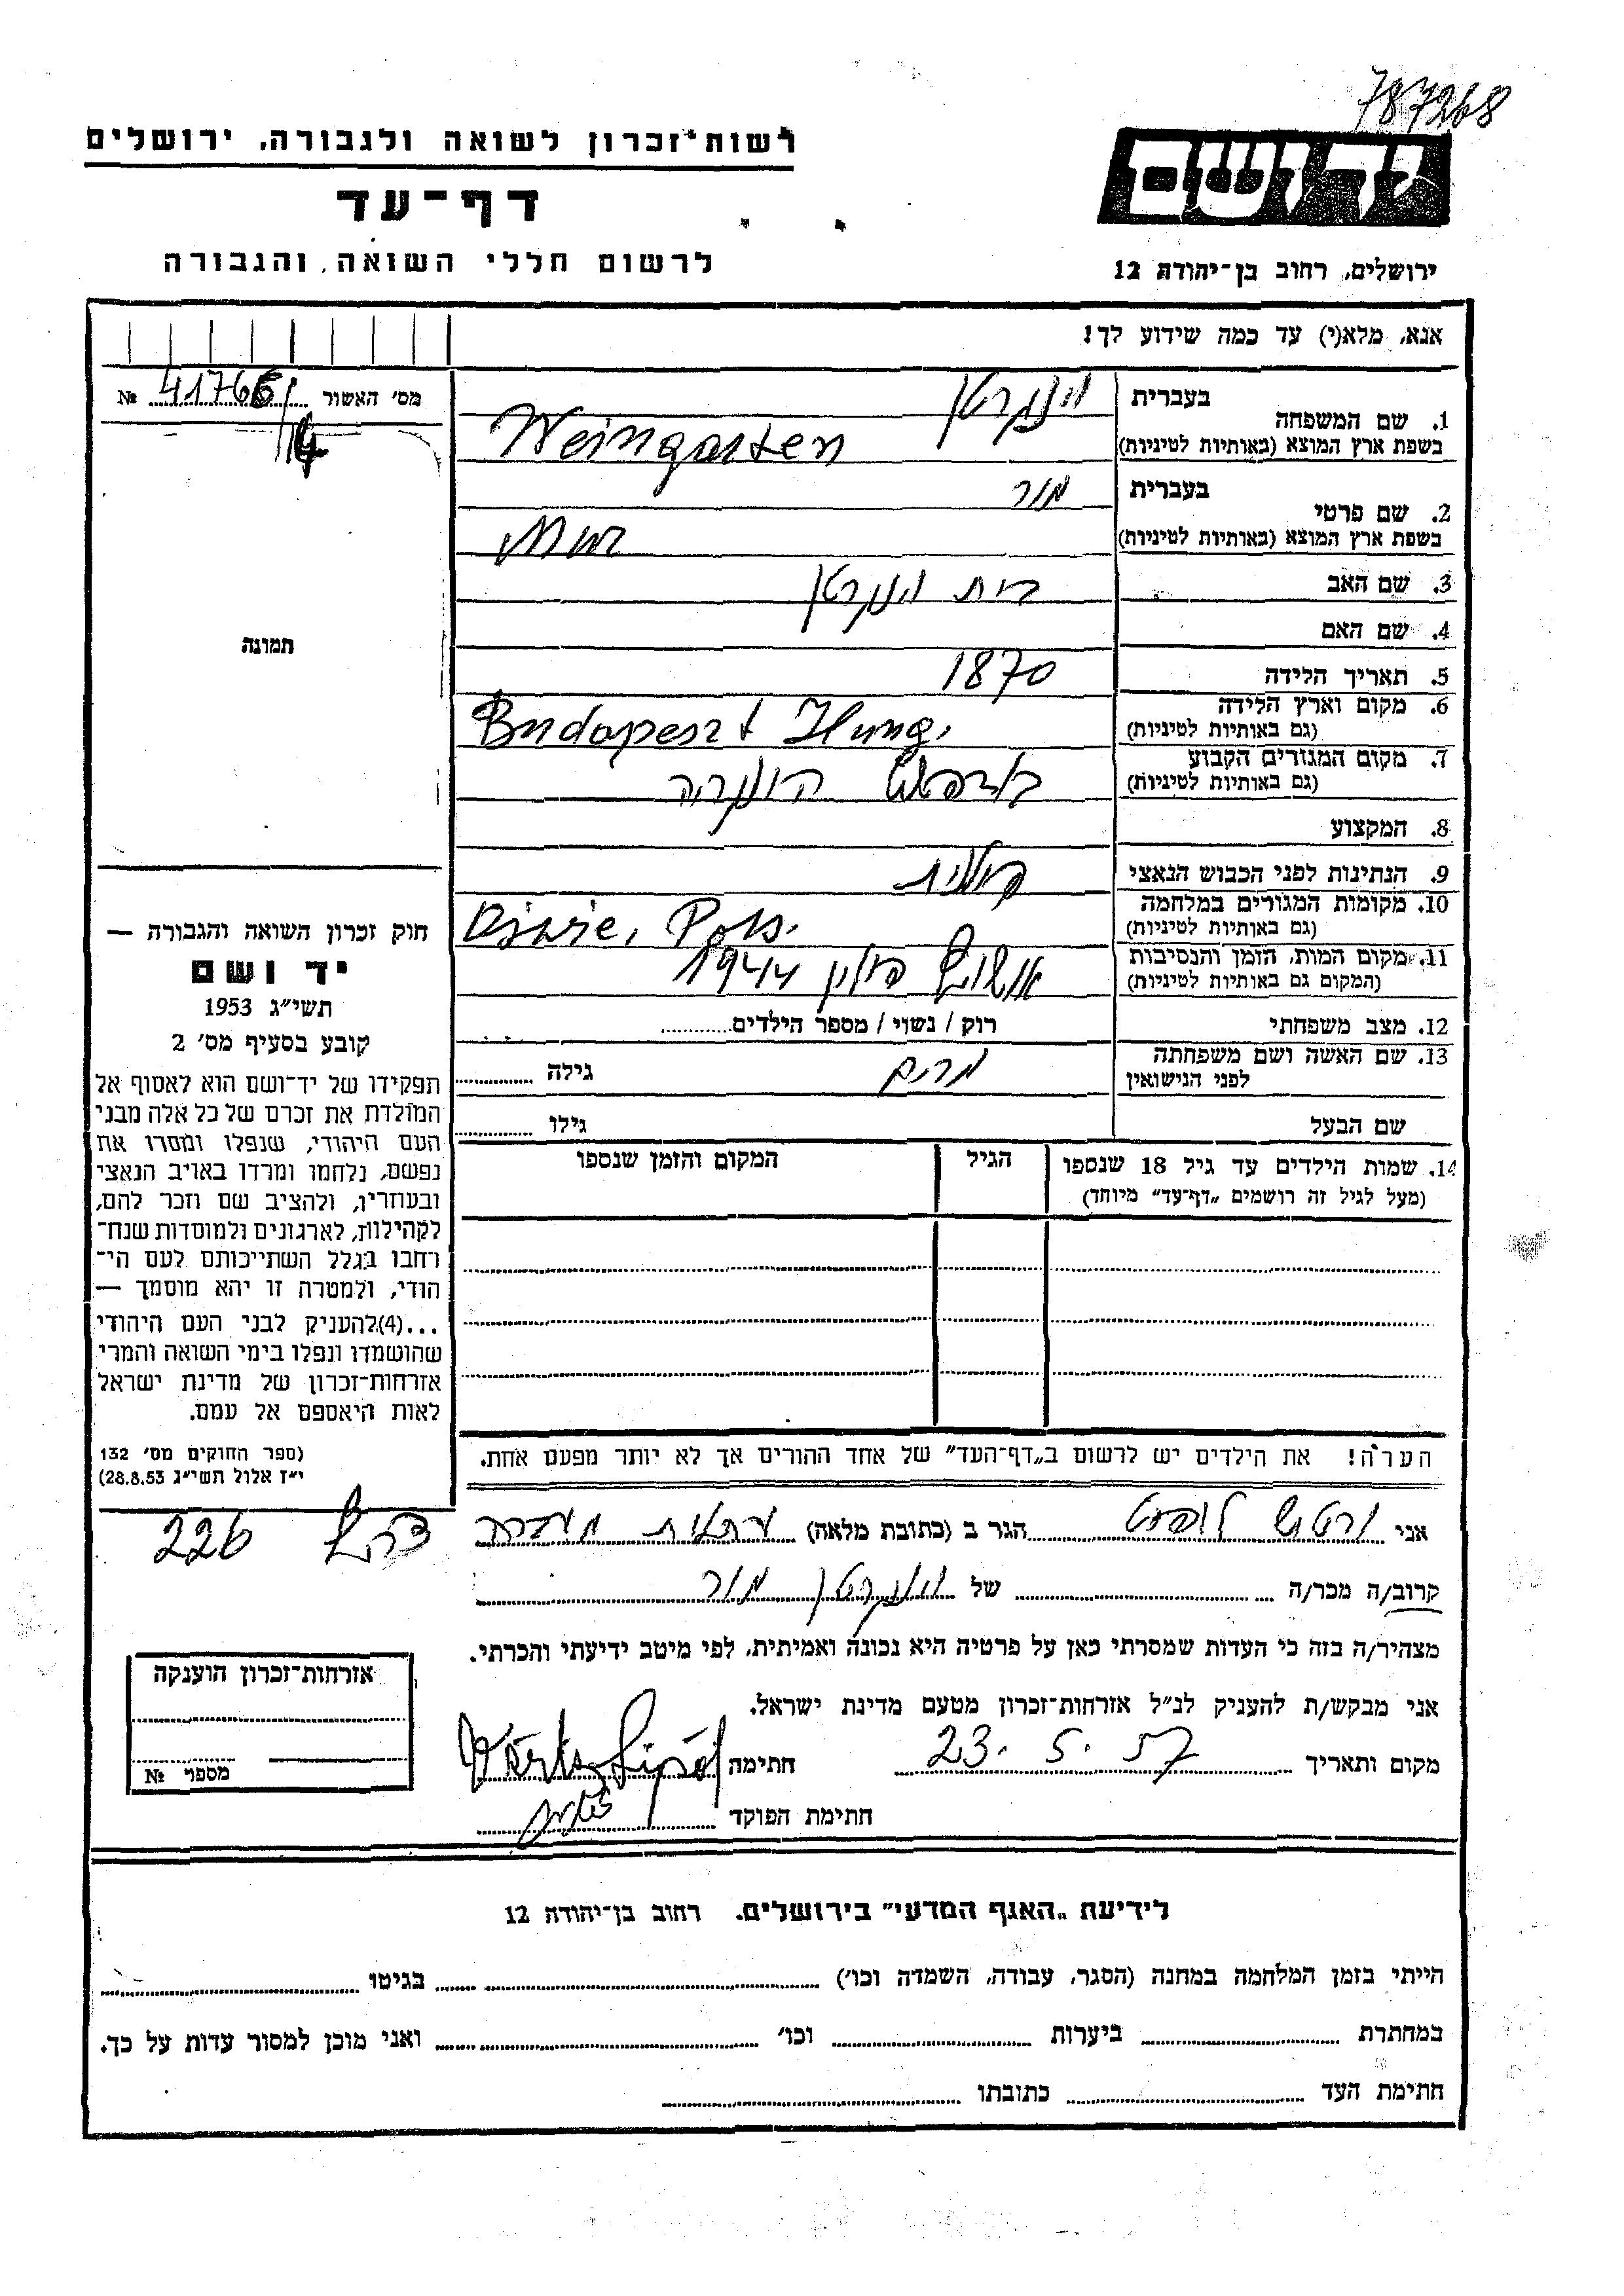 787268
רשות־זכרון לשואה ולגבורה, ירושלים
יד ושם
דף־עד
לרשום חללי השואה והגבורה
ירושלים, רחוב בן־יהודה 12
אנא, מלא(י) עד כמה שידוע לך!
מס׳ האשור 41766 №
1. שם המשפחה בעברית וינגרטן
בשפת ארץ המוצא (באותיות לטיניות) Weingarten
2. שם פרטי בעברית מור
בשפת ארץ המוצא (באותיות לטיניות)
3. שם האב
4. שם האם
תמונה
5. תאריך הלידה 1870
6. מקום וארץ הלידה
(גם באותיות לטיניות) Budapeszt Hung.
7. מקום המגורים הקבוע
(גם באותיות לטיניות) בודפשט הונגריה
8. המקצוע
9. הנתינות לפני הכבוש הנאצי פולנית
10. מקומות המגורים במלחמה
(גם באותיות לטיניות)
11. מקום המות, הזמן והנסיבות
(המקום גם באותיות לטיניות) אושויץ פולין 1944
12. מצב משפחתי רוק / נשוי / מספר הילדים
13. שם האשה ושם משפחתה
לפני הנישואין מרים גילה
שם הבעל גילו
14. שמות הילדים עד גיל 18 שנספו הגיל המקום והזמן שנספו
(מעל לגיל זה רושמים „דף־עד” מיוחד)
חוק זכרון השואה והגבורה —
יד ושם
תשי״ג 1953
קובע בסעיף מס׳ 2
תפקידו של יד־ושם הוא לאסוף אל
המולדת את זכרם של כל אלה מבני
העם היהודי, שנפלו ומסרו את
נפשם, נלחמו ומרדו באויב הנאצי
ובעוזריו, ולהציב שם וזכר להם,
לקהילות, לארגונים ולמוסדות שנח־
רחבו בגלל השתייכותם לעם הי־
הודי, ולמטרה זו יהא מוסמך —
...(4) להעניק לבני העם היהודי
שהושמדו ונפלו בימי השואה והמרי
אזרחות־זכרון של מדינת ישראל
לאות היאספם אל עמם.
(ספר החוקים מס׳ 132
י״ז אלול תשי״ג 28.8.53)
הערה! את הילדים יש לרשום ב„דף־העד” של אחד ההורים אך לא יותר מפעם אחת.
226
אני ורטש ליפוט הגר ב (כתובת מלאה)
קרוב/ה מכר/ה של וינגרטן מור
מצהיר/ה בזה כי העדות שמסרתי כאן על פרטיה היא נכונה ואמיתית, לפי מיטב ידיעתי והכרתי.
אני מבקש/ת להעניק לנ״ל אזרחות־זכרון מטעם מדינת ישראל.
מקום ותאריך 23. 5. 57 חתימה Vértes Lipót
חתימת הפוקד
אזרחות־זכרון הוענקה
מספר №
לידיעת „האגף המדעי” בירושלים. רחוב בן־יהודה 12
הייתי בזמן המלחמה במחנה (הסגר, עבודה, השמדה וכו׳) בגיטו
במחתרת ביערות וכו׳ ואני מוכן למסור עדות על כך.
חתימת העד כתובתו